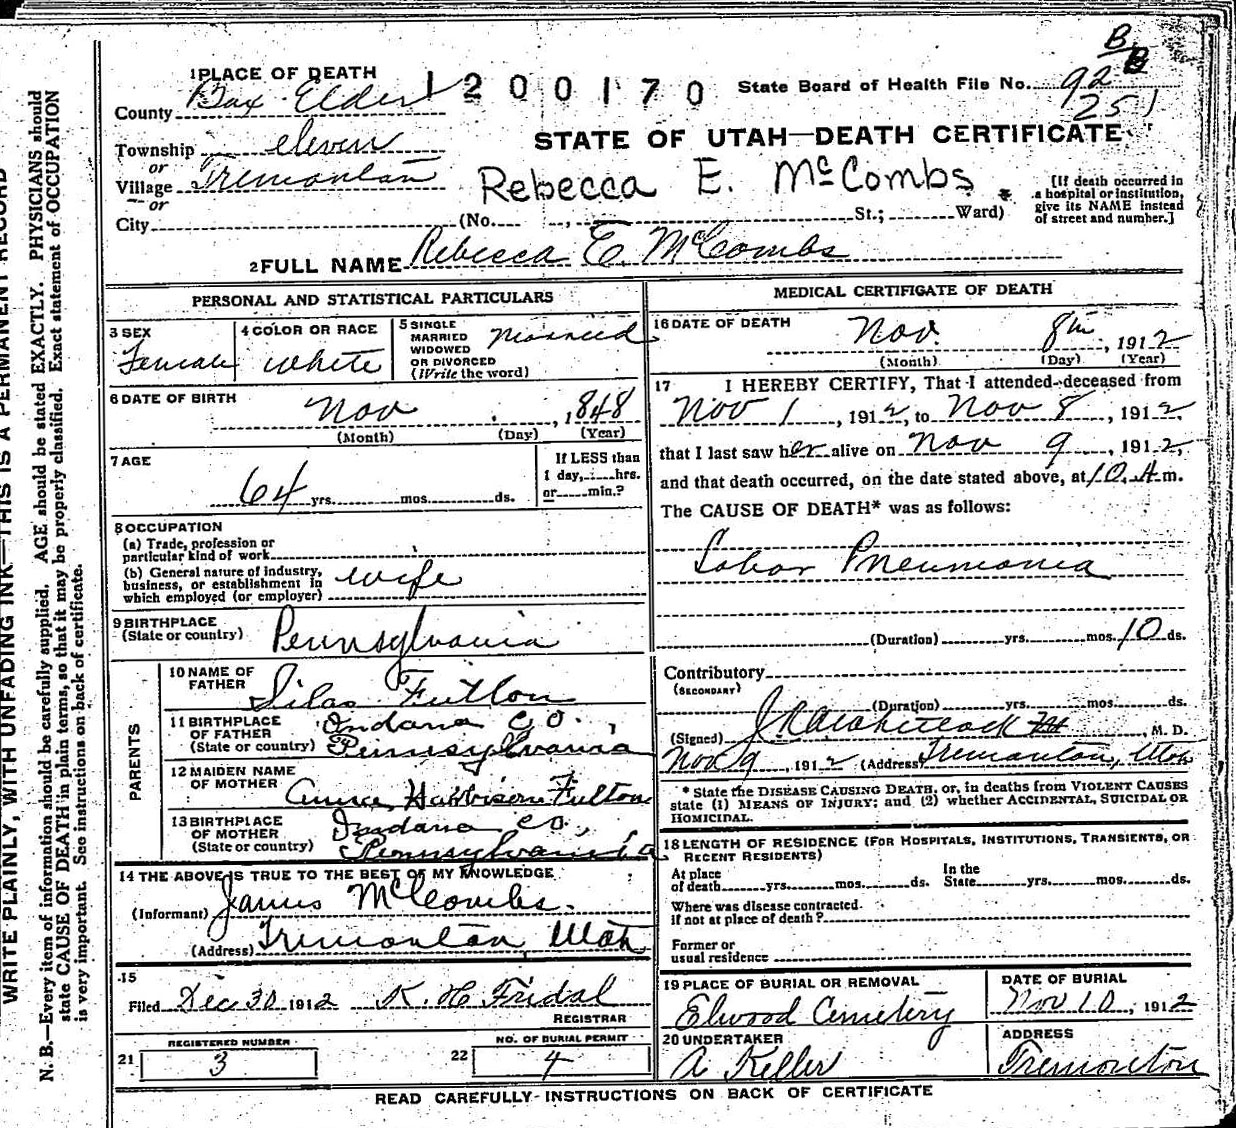 WRITE PLAINLY, WITH UNFADING INK—THIS IS A PERMANENT RECORD
N. B.—Every item of information should be carefully supplied. AGE should be stated EXACTLY. PHYSICIANS should
state CAUSE OF DEATH in plain terms, so that it may be properly classified. Exact statement of OCCUPATION
is very important. See instructions on back of certificate.
B
B
1 PLACE OF DEATH
County Box Elder
1200170
State Board of Health File No. 92
251
Township eleven
or
Village Tremonton
or
City
STATE OF UTAH—DEATH CERTIFICATE
Rebecca E. McCombs
(No. , St.; Ward)
[If death occurred in
a hospital or institution,
give its NAME instead
of street and number.]
2 FULL NAME Rebecca E. McCombs
PERSONAL AND STATISTICAL PARTICULARS
3 SEX
Female
4 COLOR OR RACE
White
5 SINGLE
MARRIED
WIDOWED
OR DIVORCED
(Write the word)
Married
6 DATE OF BIRTH
Nov , 1848
(Month) (Day) (Year)
7 AGE
64 yrs. mos. ds.
If LESS than
1 day, hrs.
or min.?
8 OCCUPATION
(a) Trade, profession or
particular kind of work
(b) General nature of industry,
business, or establishment in
which employed (or employer)
wife
9 BIRTHPLACE
(State or country)
Pennsylvania
PARENTS
10 NAME OF
FATHER
Silas Fulton
11 BIRTHPLACE
OF FATHER
(State or country)
Indana CO.,
Pennsylvania
12 MAIDEN NAME
OF MOTHER
Harbison Fulton
13 BIRTHPLACE
OF MOTHER
(State or country)
Indana CO.,
Pennsylvania
14 THE ABOVE IS TRUE TO THE BEST OF MY KNOWLEDGE
(Informant) James McCombs.
(Address) Tremonton Utah
15
Filed Dec 30 1912 K. H. Fridal
REGISTRAR
21
REGISTERED NUMBER
3
22
NO. OF BURIAL PERMIT
4
MEDICAL CERTIFICATE OF DEATH
16 DATE OF DEATH
Nov. 8th, 1912
(Month) (Day) (Year)
17 I HEREBY CERTIFY, That I attended deceased from
Nov 1, 1912, to Nov 8, 1912,
that I last saw her alive on Nov 9, 1912,
and that death occurred, on the date stated above, at 10. A m.
The CAUSE OF DEATH* was as follows:
Lobar Pneumonia
(Duration) yrs. mos. 10 ds.
Contributory
(SECONDARY)
(Duration) yrs. mos. ds.
(Signed) M. D.
Nov 9, 1912 (Address) Tremonton, Utah
* State the DISEASE CAUSING DEATH, or, in deaths from VIOLENT CAUSES
state (1) MEANS OF INJURY; and (2) whether ACCIDENTAL, SUICIDAL OR
HOMICIDAL.
18 LENGTH OF RESIDENCE (FOR HOSPITALS, INSTITUTIONS, TRANSIENTS, OR
RECENT RESIDENTS)
At place
of death yrs. mos. ds.
In the
State yrs. mos. ds.
Where was disease contracted.
if not at place of death?
Former or
usual residence
19 PLACE OF BURIAL OR REMOVAL
Elwood Cemetery
DATE OF BURIAL
Nov 10, 1912
20 UNDERTAKER
A Keller
ADDRESS
Tremonton
READ CAREFULLY—INSTRUCTIONS ON BACK OF CERTIFICATE